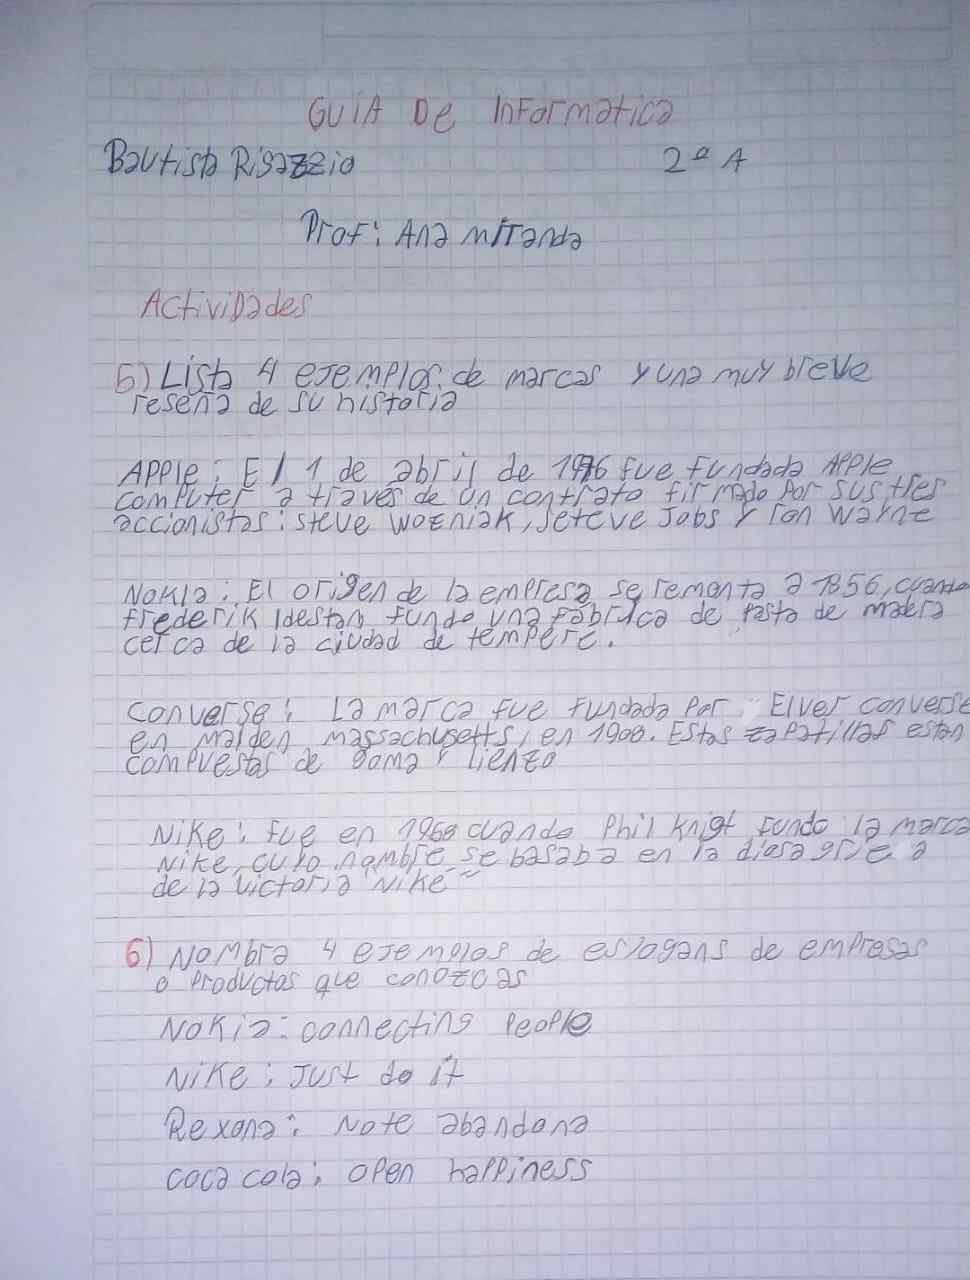 GUIA De InFormatica
Bautista Rigazzio 2ª A
Prof: Ana miranda
Actividades
5) Lista 4 ejemplos de marcas y una muy breve
reseña de su historia
Apple: El 1 de abril de 1976 fue fundada Apple
computer a través de un contrato firmado por sus tres
accionistas: steve wozniak, seteve Jobs y ron warne
Nokia: El origen de la empresa se remonta a 1856, cuando
frederik Idestam fundo una fabrica de pasta de madera
cerca de la ciudad de tempere.
converse: La marca fue fundada por Elver converse
en malden massachusetts, en 1908. Estas zapatillas estan
compuestas de goma y lienzo
Nike: fue en 1968 cuando Phil knigt fundo la marca
Nike, cuyo nombre se basaba en la diosa griega
de la victoria "Nike"
6) Nombra 4 ejemplos de eslogans de empresas
o productos que conozcas
Nokia: connecting people
Nike: Just do it
Rexona: No te abandona
coca cola: open happiness